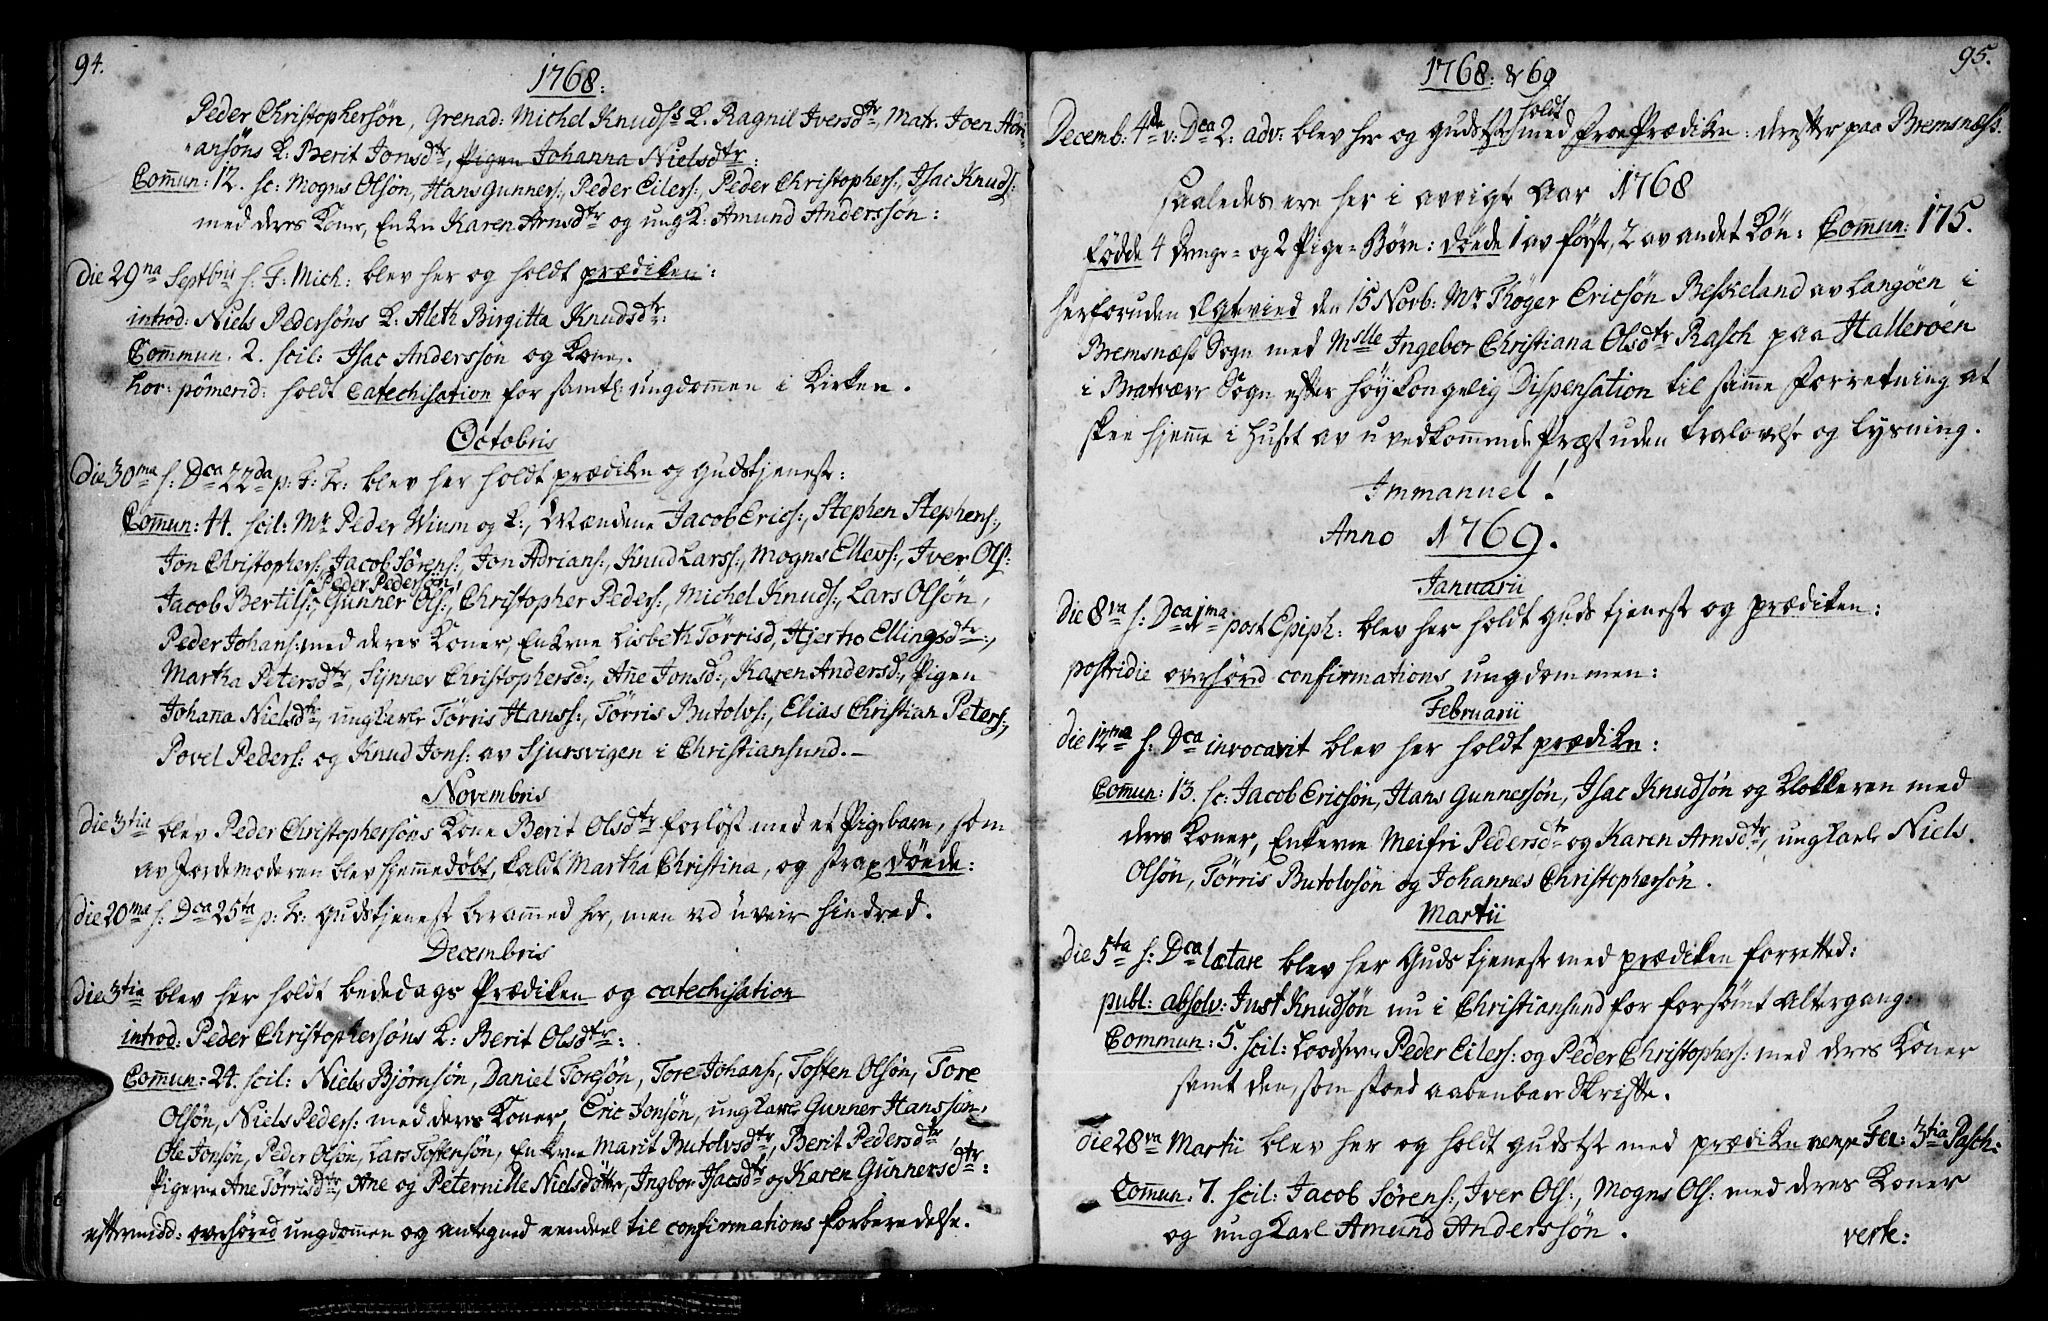 94.
1768.
Peder Christophersøn, Grenad: Michel Knuds: K. Ragnil Iversdtr, Matr. Joen Hon
ansøns K: Berit Jonsdtr, Pigen Johanna Nielsdtr:
Comun: 12. sc: Mogns Olsøn, Hans Gunners:, Peder Eilers:, Peder Christophers:, Isac Knuds:
med deres Koner, Enken Karen Arnsdtr og ung K: Amund Anderssøn:
Die 29na Septbris s. F: Mich: blev her og holdt prædiken:
introd: Niels Pedersøns K: Aleth Birgitta Knudsdtr:
Commun. 2. scil: Isac Anderssøn og Kone.
hor: pomerid: holdt Catechisation for samtl: ungdommen i Kirken.
Octobris
Die 30ma s: Dca 22da p: F: Tr: blev her holdt prædiken og gudstjeneste:
Comun: 44. scil: Mr Peder Wium og K:, Mændene Jacob Erics:, Stephen Stephens:,
Jon Christophers:, Jacob Sørens:, Jon Adrians:, Knud Larss:, Mogns Ellevs:, Iver Ols:
Peder Pedersøn,
Jacob Bertils:, Gunner Ols:, Christopher Peders:, Michel Knuds:, Lars Olsøn,
Peder Johans: med deres Koner, Enkerne Lisbeth Tørrisd, Hjertro Ellingsdtr:,
Martha Petersdtr, Synnev Christophersd:, Ane Jonsd:, Karen Andersd:, Pigen
Johana Nielsdtr, ungkarle Tørris Hanss:, Tørris Butolvs:, Elias Christian Peters:,
Povel Peders: og Knud Jons: av Sjursvigen i Christiansund.
Novembris
die 3tia blev Peder Christophersøns Kone Berit Olsdtr forløst med et Pigebarn, som
av Jordemoderen blev hjemmedøbt, kaldt Martha Christina, og strax døede:
die 20ma s: Dca 25ta p: Tr: Gudstjenest berammed her, men ved uveir hindred.
Decembris
die 3tia blev her holdt bededags Prædiken og catechisation
introd: Peder Christophersøns K: Berit Olsdtr:
Comun: 24. scil: Niels Bjørnsøn, Daniel Toresøn, Tore Johans:, Tosten Olsøn, Tore
Olsøn, Niels Peders: med deres Koner, Eric Jonsøn, ungkarle Gunner Hanssøn,
Ole Jonsøn, Peder Olsøn, Lars Tostensøn, Enkerne Marit Butolvsdtr, Berit Pedersdtr,
Pigerne Ane Tørrisdtr, Ane og Peternille Nielsdøttre, Ingbor Isacsdtr og Karen Gunnersdtr:
eftermidd: overhøred ungdommen og antegned eendeel til confirmations forberedelse.
95.
1768. & 69
holdt
Decemb: 4de v: Dca 2: adv: blev her og gudstst med froe Prædiken: derefter paa Bremsnæss.
saaledes ere her i avvigte Aar 1768
fødde 4 Drenge- og 2 Pige-Børn: døede 1 av første, 2 av andet Køn: Comun: 175.
herforuden egtevied den 15 Novb: Mr Thøger Ericsøn Beskeland av Langøen i
Bremsnæss Sogn med Mslle Ingebor Christiana Olsdtr Rasch paa Halleroen
i Bratvær Sogn efter høy Kongelig Dispensation til samme forretning at
skee hjemme i Huset av uvedkommende Præst uden trolovelse og Lysning.
Immanuel!
Anno 1769.
Januarii
Die 8va s: Dca 1ma post Epiph: blev her holdt Guds tjenest og prædiken:
postridie overhørd confirmations ungdommen:
Februarii
die 12ma s: Dca invocavit blev her holdt prædiken:
Comun: 13. sc: Jacob Ericsøn, Hans Gunnersøn, Isac Knudsøn og Klokkeren med
deres Koner, Enkerne Meifri Pedersdtr og Karen Arnsdtr, ungkarle Niels
Olsøn, Tørris Butolvsøn og Johannes Christophersøn.
Martii
die 5ta s: Dca lætare blev her Guds tjenest med prædiken forretted:
publ: absolv: Just Knudsøn nu i Christiansund for forsømt Altergang:
Commun: 5. scil: Loodserne Peder Eilers: og Peder Christophers: med deres Koner
samt den, som stoed aabenbare Skrifte.
die 28va Martii blev her og holdt gudstst med prædiken nempe Fer: 3tia Pasch:
Comun: 7. scil: Jacob Sørens:, Iver Ols:, Mogns Ols: med deres Koner
og ung Karl Amund Anderssøn.
verte: